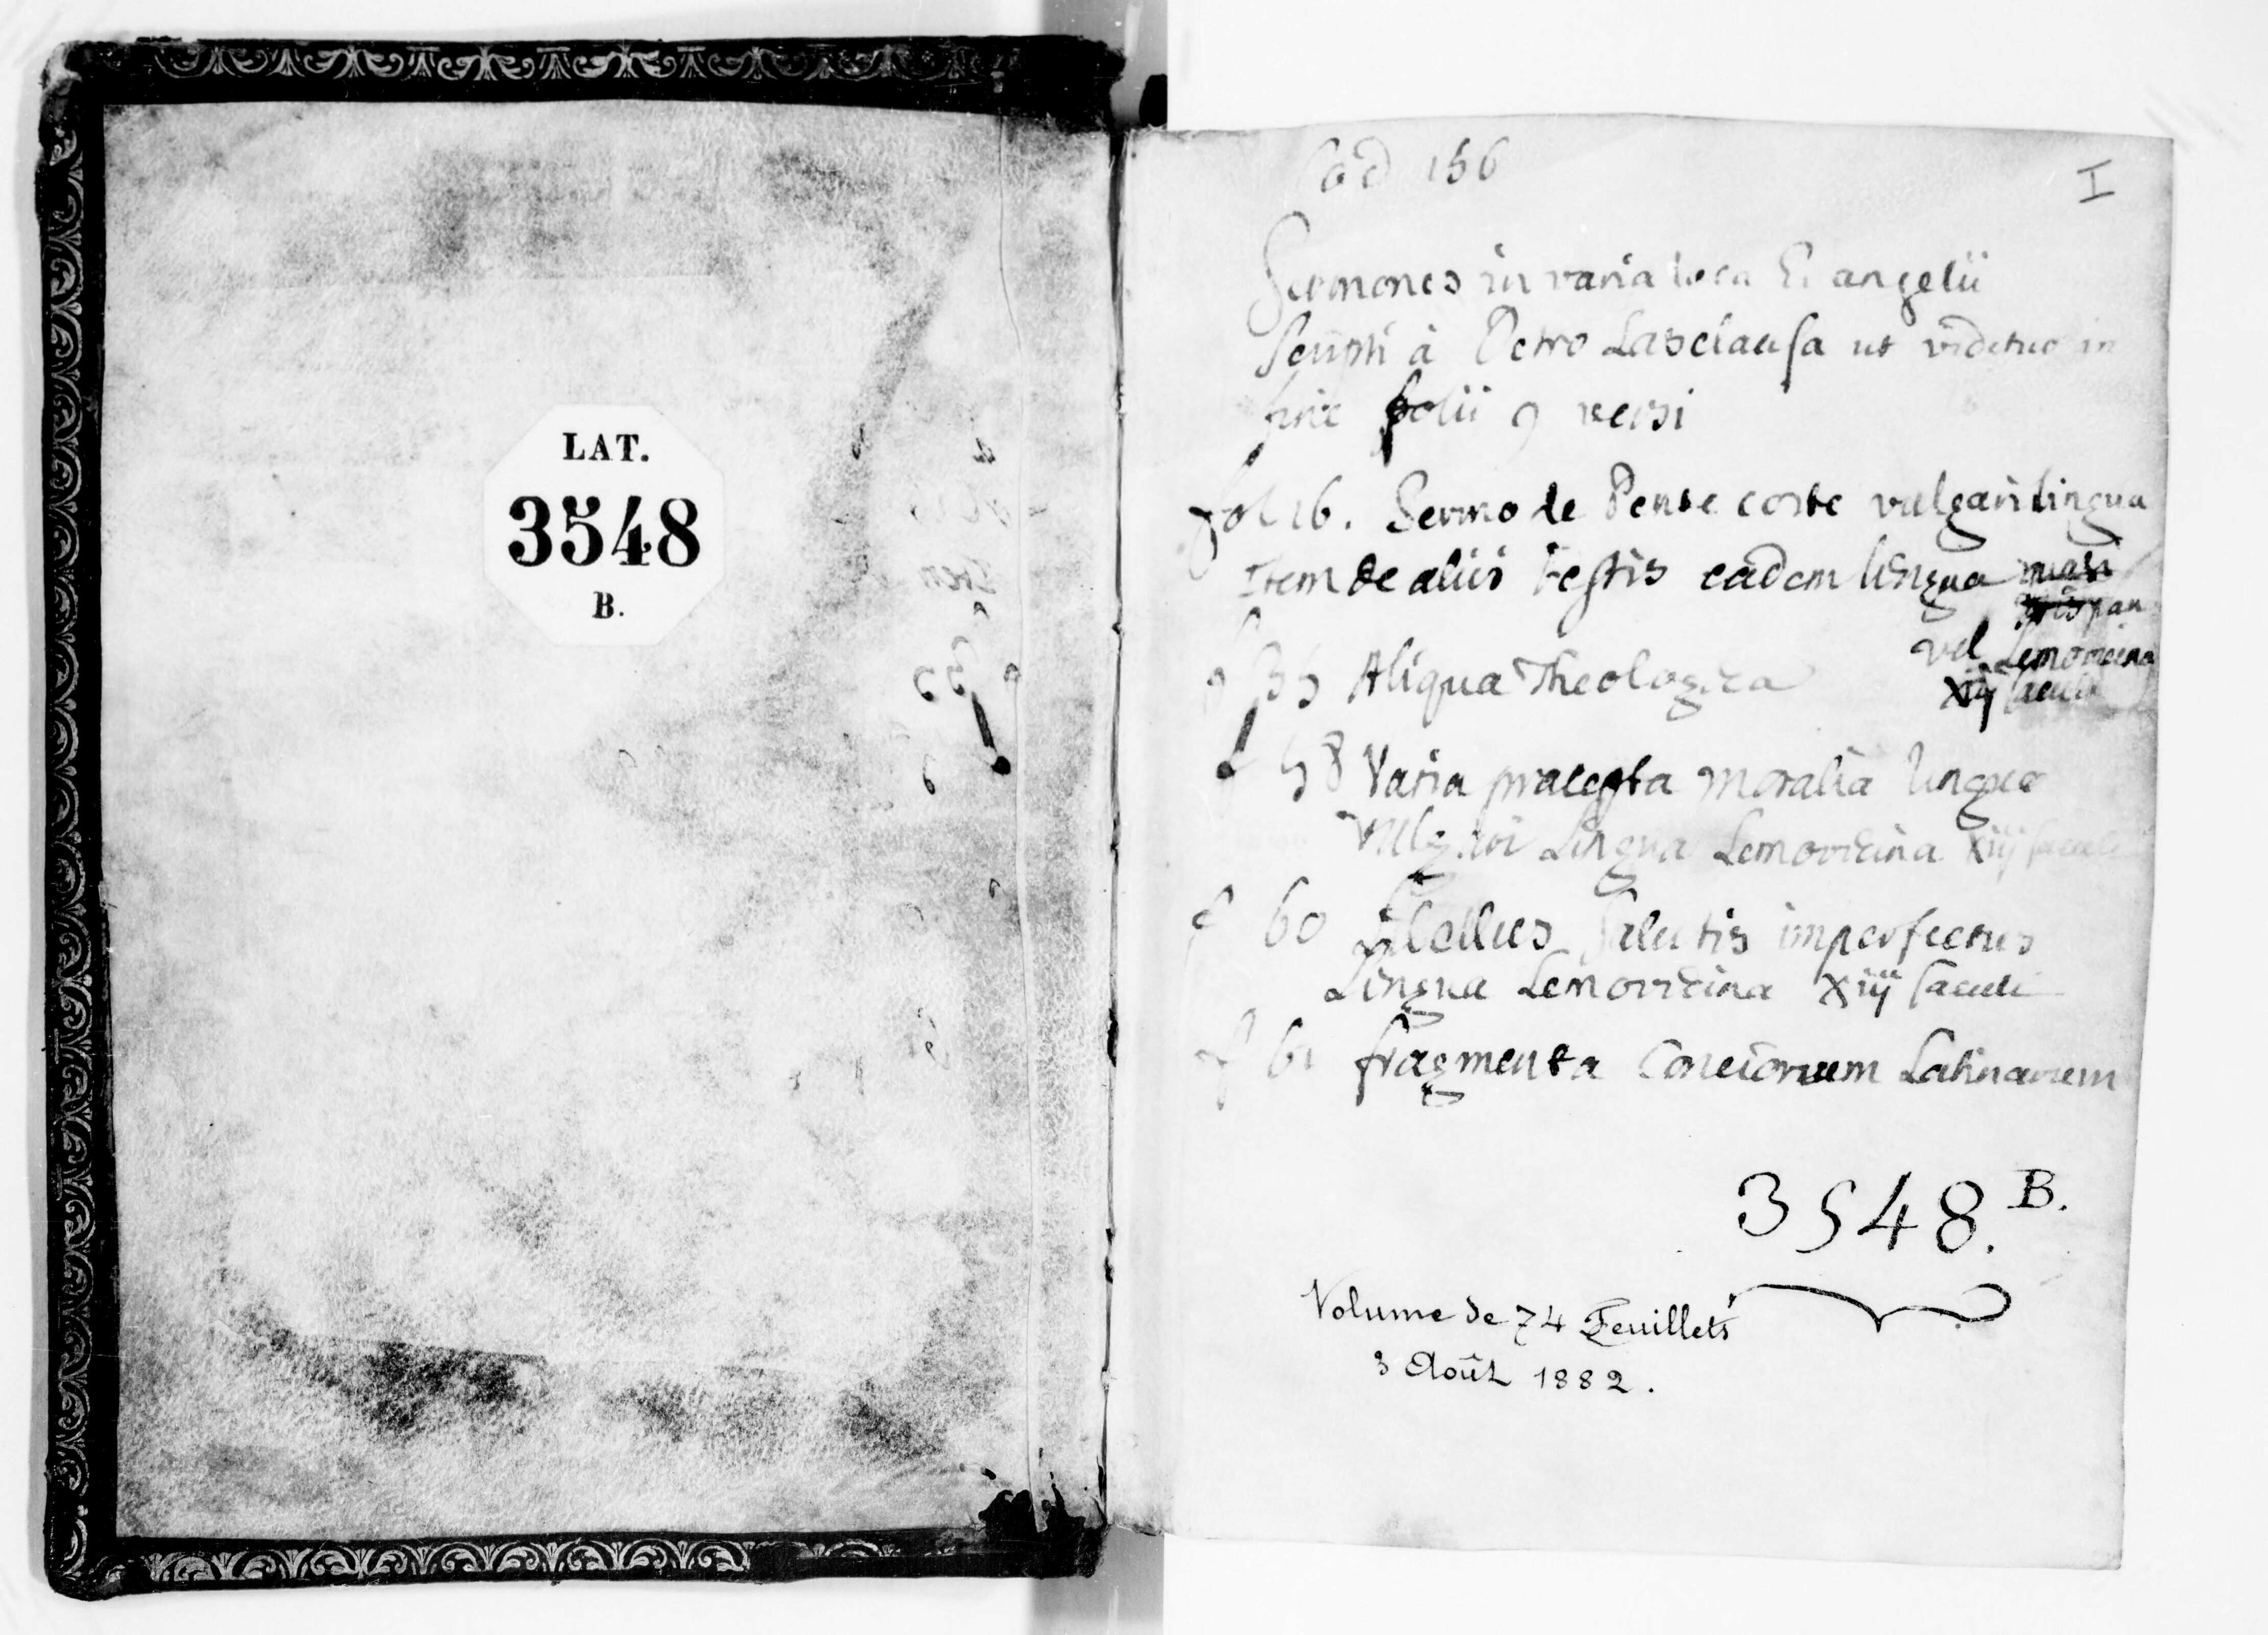 LAT.
3548
B.
Cod 156
I
Sermones in varia loca Evangelii
scripti à Petro Lasclausa ut videtur in
fine folii 9 versi
fol 16. Sermo de Pentecoste vulgari lingua
Item de aliis Festis eadem lingua
vel Lemovicina
xiij saeculi
f 35 Aliqua Theologica
f 58 Varia praecepta moralia lingua
vulgari Lingua Lemovicina xiij saeculi
f 60 Libellus Salutis imperfectus
Lingua Lemovicina xiij saeculi
f 61 fragmenta Concionum Latinarum
3548. B.
Volume de 74 Feuillets
3 Août 1882.